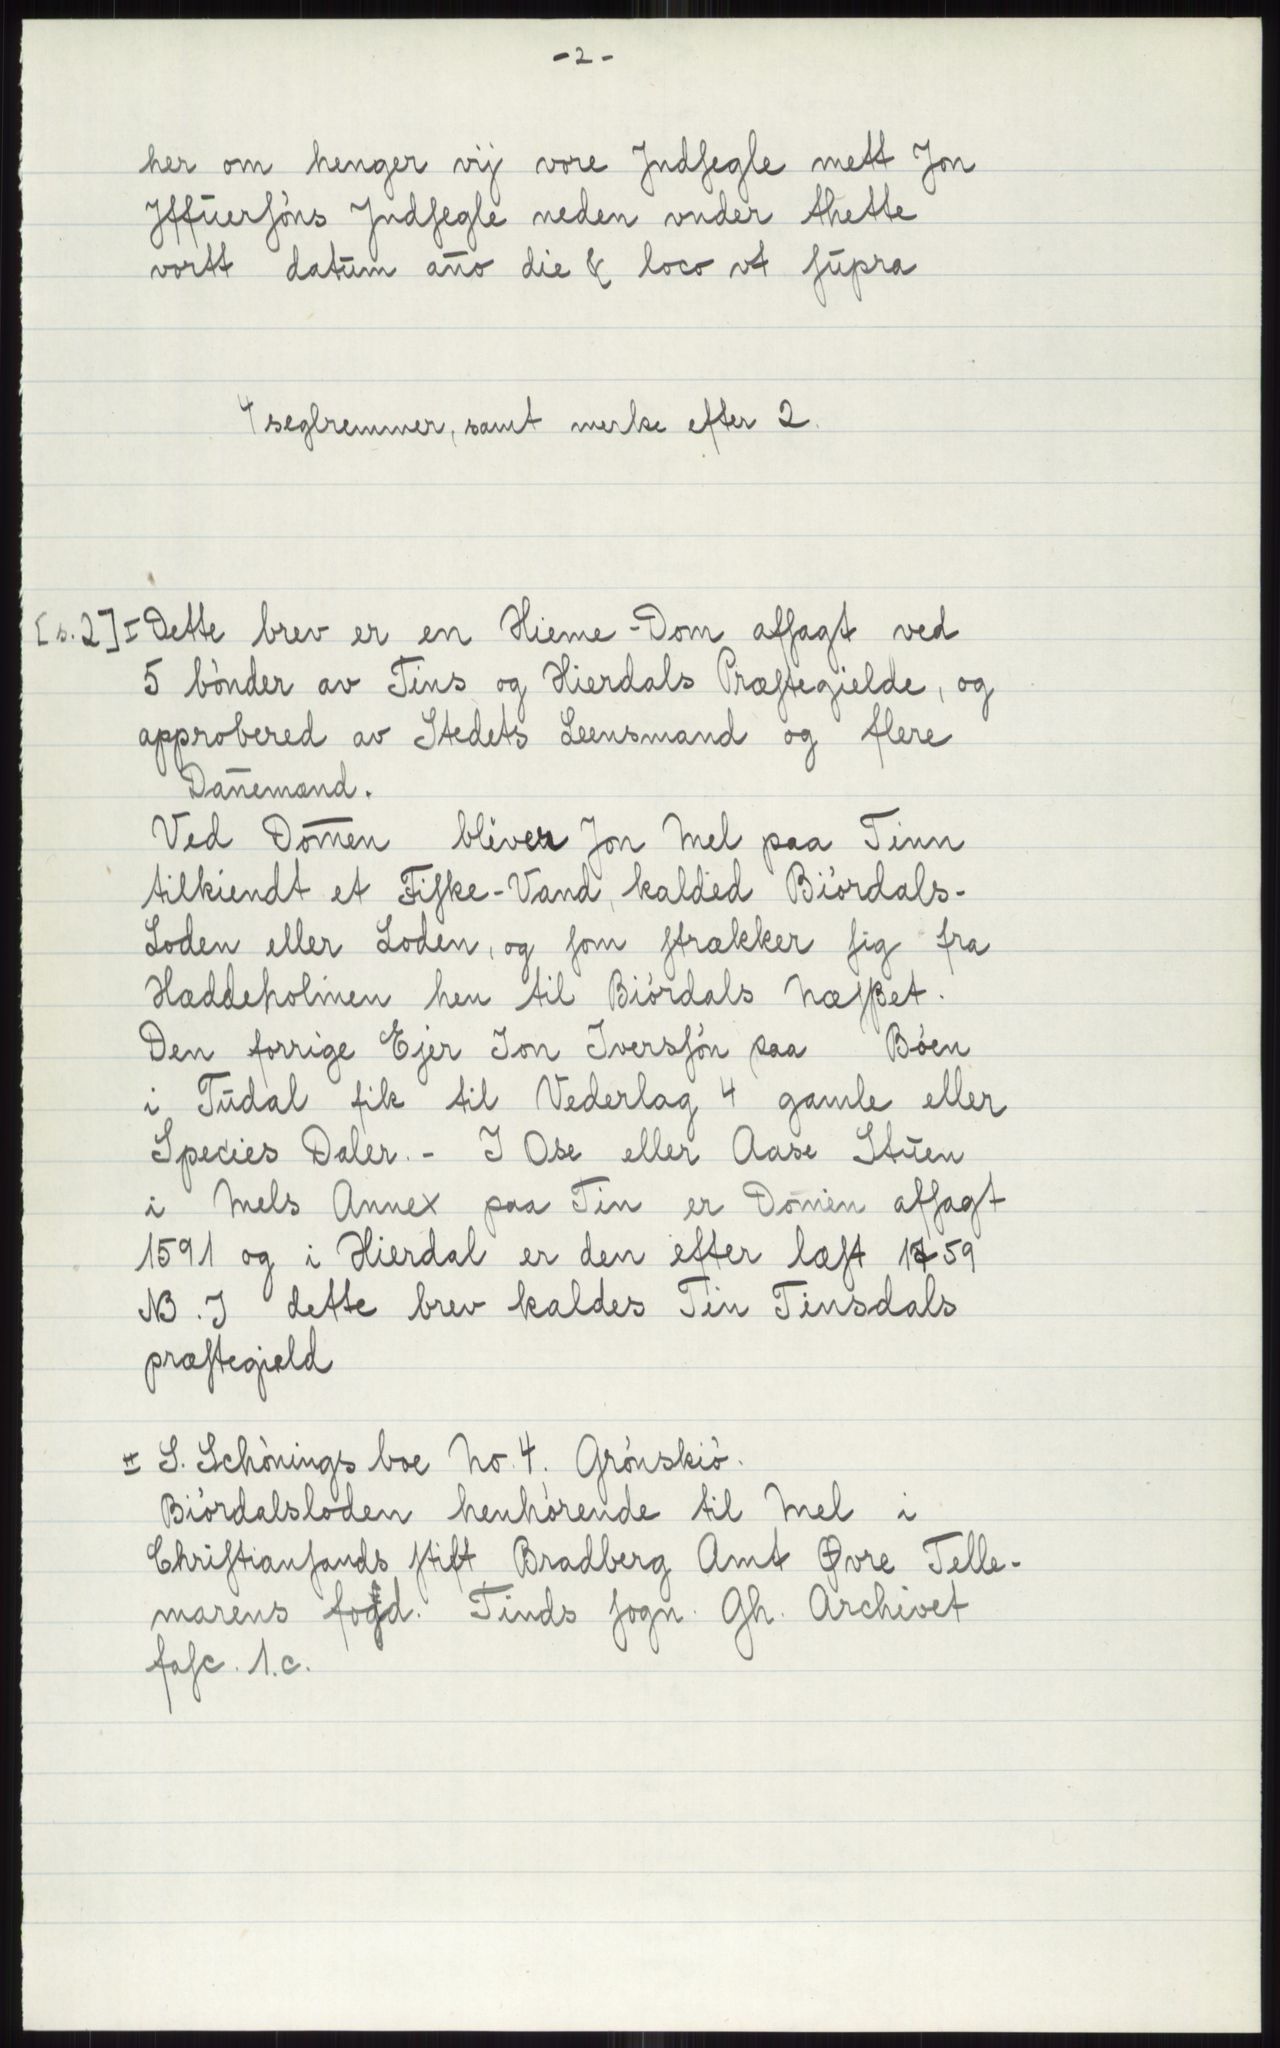 -2-
her om henger vij vore Jndſegle mett Jon
Jffūerſöns Jndſegle neden vnder thette
vortt datūm año die & loco vt ſūpra
4 seglremmer, samt merke efter 2.
[s. 2] I Dette brev er en Hieme-Dom afſagt ved
5 bönder av Tins og Hierdals Præſtegielde, og
approbered av Stedets Leensmand og flere
Dan̄emænd.
Ved Dom̄en bliver Jon Mel paa Tinn
tilkiendt et Fiſke-Vand, kalded Biördals-
Loden eller Loden, og ſom ſtrækker ſig fra
Hæddeholmen hen til Biördals Næſſet.
Den forrige Ejer Jon Iversſön paa Böen
i Tūdal fik til Vederlag 4 gamle eller
Species Daler. - I Ose eller Aase Stūen
i Mels Annex paa Tin er Dom̄en afſagt
1591 og i Hierdal er den efter læſt 1759
NB. J dette brev kaldes Tin Tinsdals
præſtegield
II S. Schönings boe No. 4. Grönskiö.
Biördalsloden henhörende til Mel i
Chriſtianſands ſtift Bradberg Amt Øvre Telle-
marens fogd. Tinds ſogn. Gh. Archivet
faſc. 1.c.